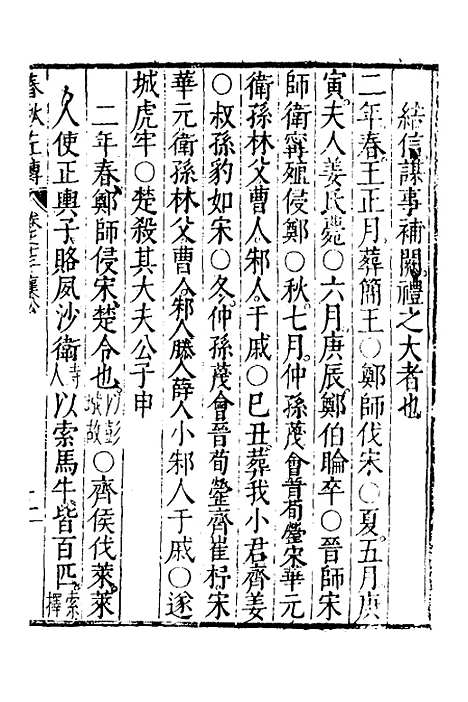 結信謀事補闕禮之大者也
二年春王正月葬簡王○鄭師伐宋○夏五月庚
寅夫人姜氏薨○六月庚辰鄭伯睔卒○晉師宋
師衛寗殖侵鄭○秋七月仲孫蔑會晉荀罃宋華元
衛孫林父曹人邾人于戚○己丑葬我小君齊姜
○叔孫豹如宋○冬仲孫蔑會晉荀罃齊崔杼宋
華元衛孫林父曹人邾人滕人薛人小邾人于戚○遂
城虎牢○楚殺其大夫公子申
二年春鄭師侵宋楚令也以彭城故○齊侯伐萊萊
人使正輿子賂夙沙衛寺人以索馬牛皆百匹索擇
春秋左傳 襄公